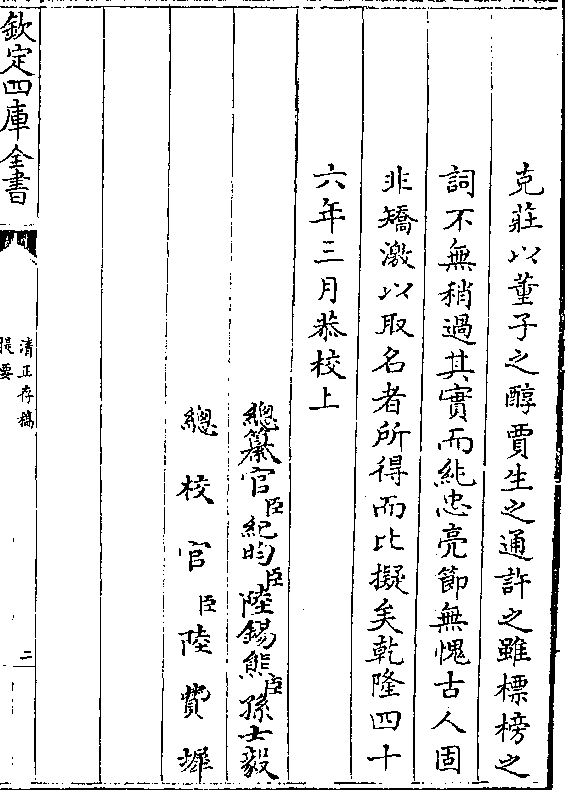 克莊以董子之醇賈生之通許之雖標榜之
詞不無稍過其實而純忠亮節無愧古人固
非矯激以取名者所得而比擬矣乾隆四十
六年三月恭校上
總纂官臣紀昀臣陸錫熊臣孫士毅
總校官臣陸費墀
欽定四庫全書
清正存稿
提要
二